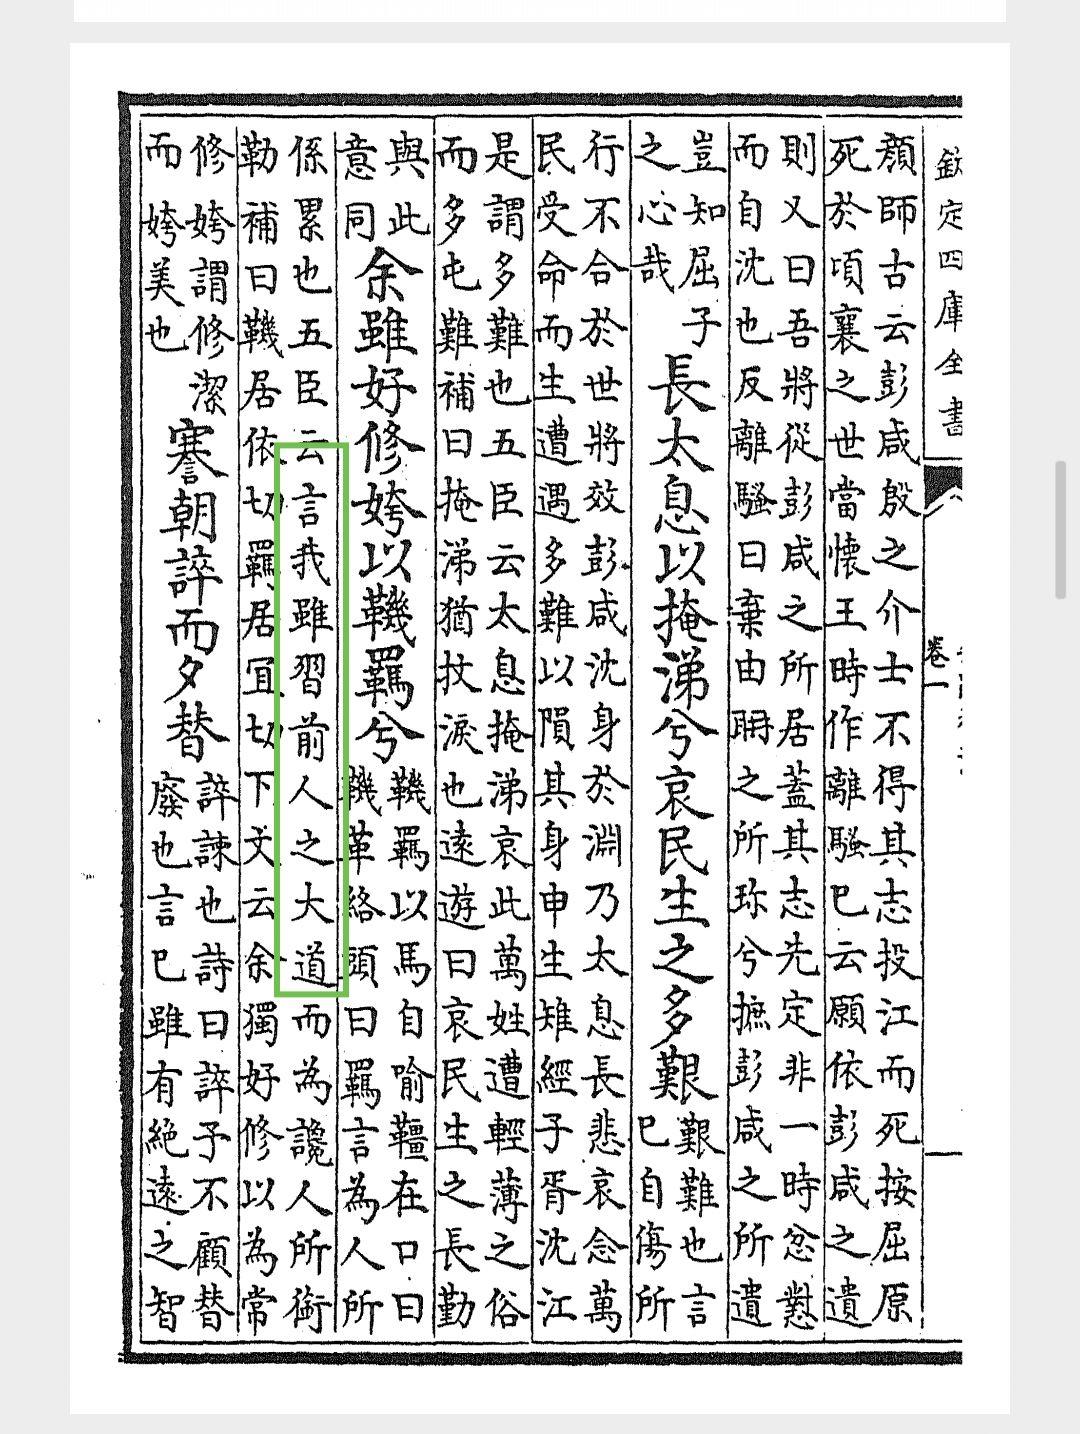 欽定四庫全書
卷一
顏師古云彭咸殷之介士不得其志投江而死按屈原
死於頃襄之世當懷王時作離騷已云願依彭咸之遺
則又曰吾將從彭咸之所居蓋其志先定非一時忿懟
而自沈也反離騷曰棄由聃之所珍兮摭彭咸之所遺
豈知屈子
之心哉
長太息以掩涕兮哀民生之多艱
艱難也言
已自傷所
行不合於世將效彭咸沈身於淵乃太息長悲哀念萬
民受命而生遭遇多難以隕其身申生雉經子胥沈江
是謂多難也五臣云太息掩涕哀此萬姓遭輕薄之俗
而多屯難補曰掩涕猶抆淚也遠遊曰哀民生之長勤
與此
意同
余雖好修姱以鞿羈兮
鞿羈以馬自喻韁在口曰
鞿革絡頭曰羈言為人所
係累也五臣云言我雖習前人之大道而為讒人所銜
勒補曰鞿居依切羈居宜切下文云余獨好修以為常
修姱謂修潔
而姱美也
謇朝誶而夕替
誶諫也詩曰誶予不顧替
廢也言已雖有絕遠之智